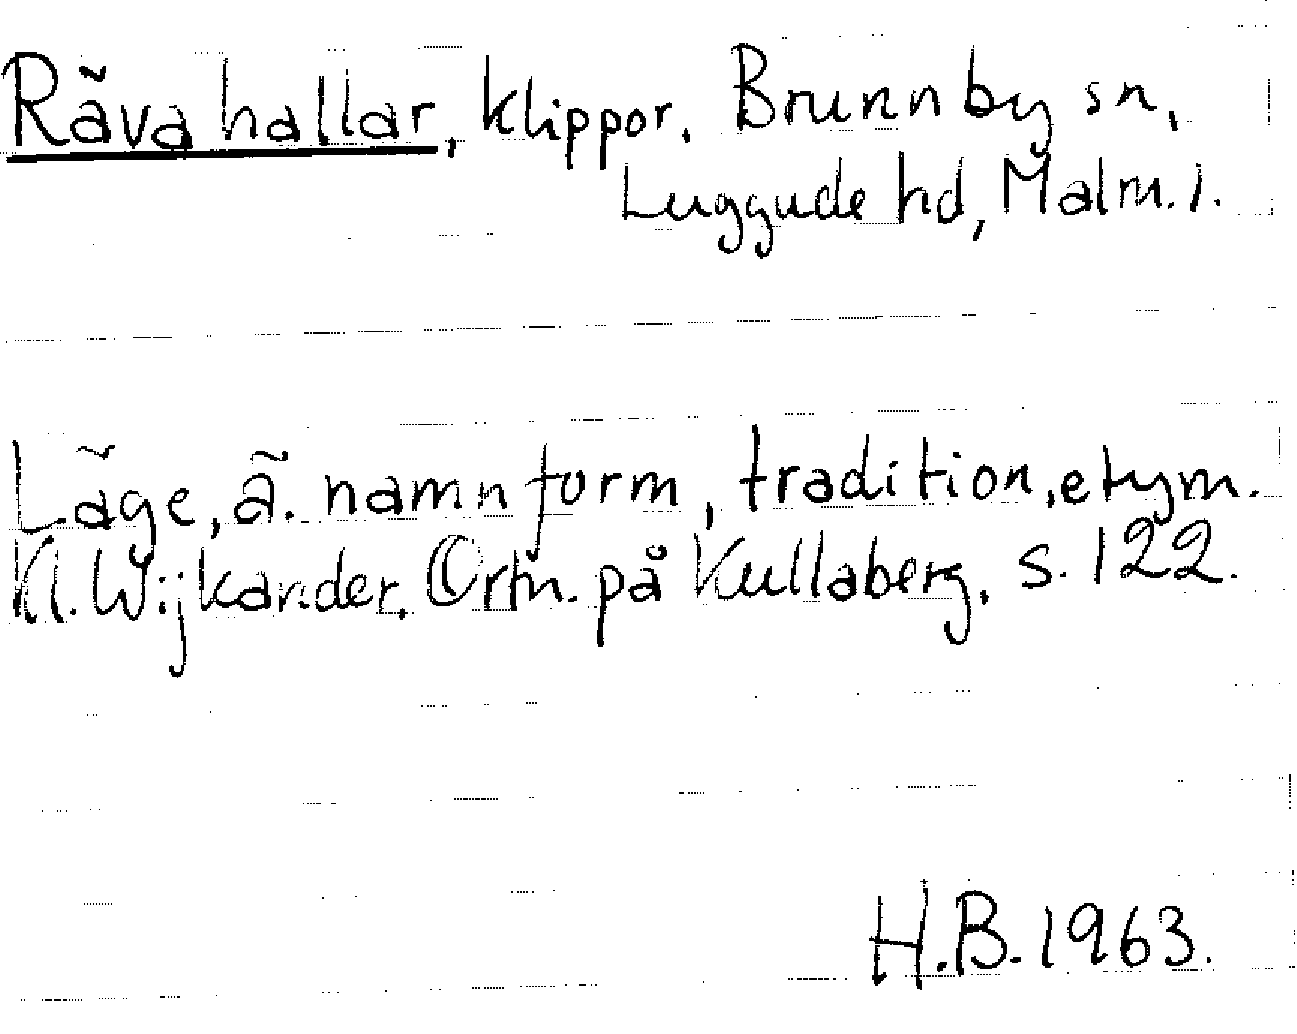 Räva hallar, klippor. Brunnby sn,
Luggude hd, Malm. l.
Läge, ä. namnform, tradition, etym.
Kl. Wijkander. Ortn. på Kullaberg, s. 122.
H.B. 1963.